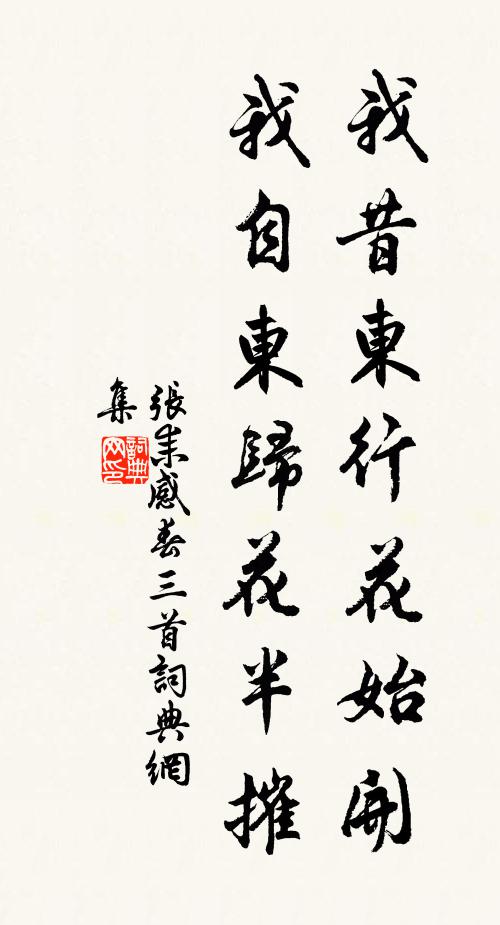 我昔東行花始開
我自東歸花半摧
張耒感春三首詞典網
集
詞典網印